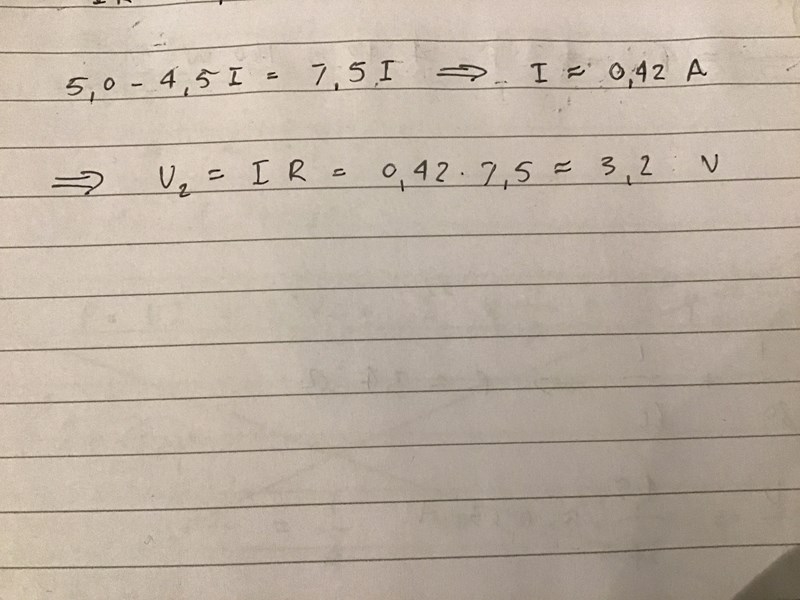 5,0 - 4,5 I = 7,5 I ⟹ I ≈ 0,42 A
⟹ U₂ = I R = 0,42 · 7,5 ≈ 3,2 V